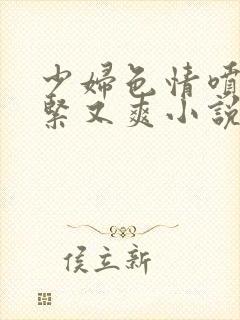 少婦色情噴
緊又爽小說
侯立新